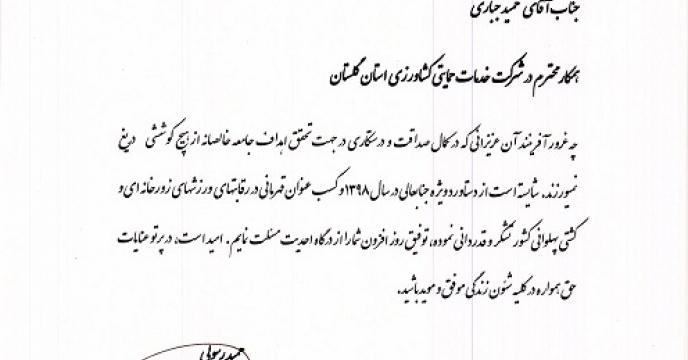 جناب آقای حمید جباری
همکار محترم در شرکت خدمات حمایتی کشاورزی استان گلستان
چه غرور آفرینند آن عزیزانی که در کمال صداقت و درستکاری در جهت تحقق اهداف جامعه خالصانه از هیچ کوششی دریغ
نمیورزند. شایسته است از دستاورد ویژه جنابعالی در سال ۱۳۹۸ و کسب عنوان قهرمانی در رقابتهای ورزشهای زورخانه ای و
کشتی پهلوانی کشور تشکر و قدردانی نموده، توفیق روز افزون شما را از درگاه احدیت مسئلت نمایم. امید است، در پرتو عنایات
حق همواره در کلیه شئون زندگی موفق و موید باشید.
حمید رسولی